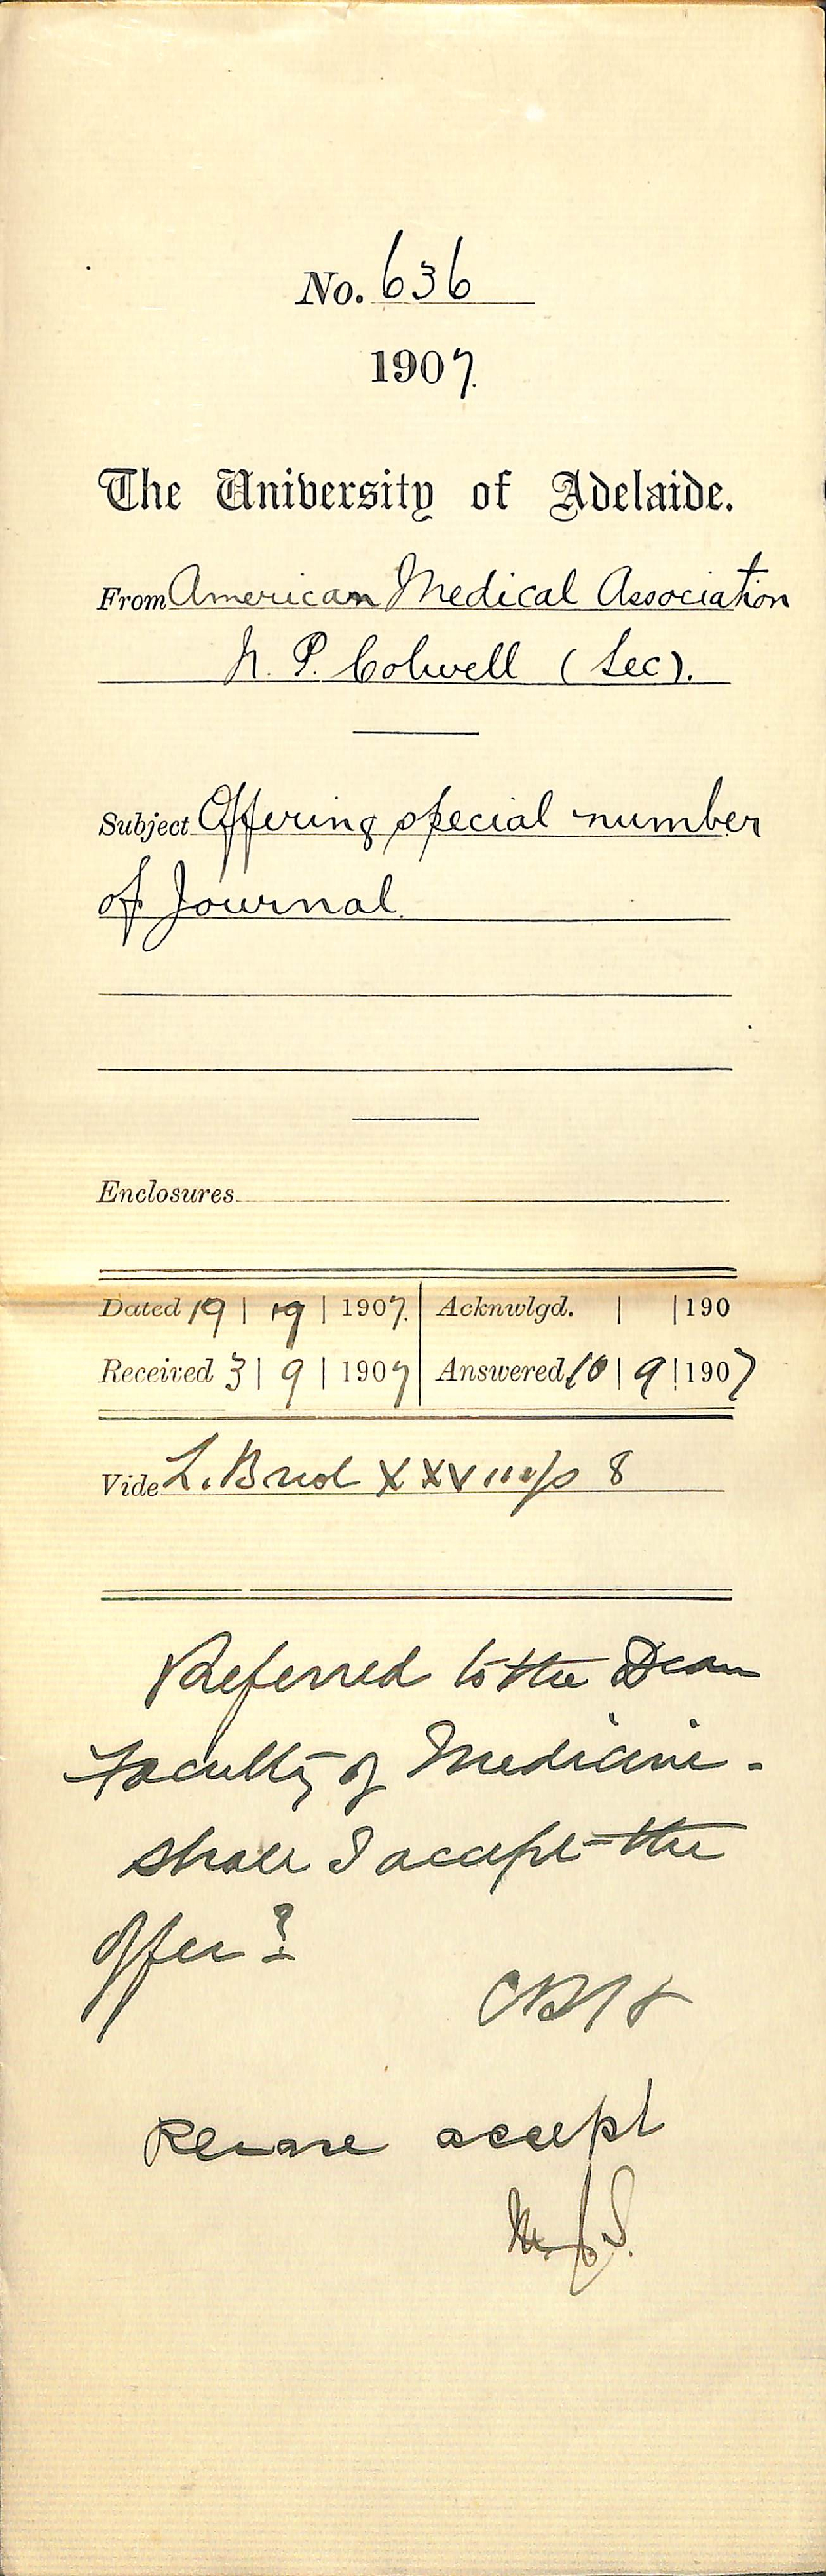 No. 636
1907.
The University of Adelaide.
From American Medical Association
N. P. Colwell (Sec).
Subject Offering special number
of Journal.
Enclosures
Dated 19 | | 1907. Acknwlgd. | | 190
Received 3 | 9 | 1907 Answered 10 | 9 | 1907
Vide L. p 8
Referred to the Dean
Faculty of Medicine.
Shall I accept the
offer?
CRH
Please accept